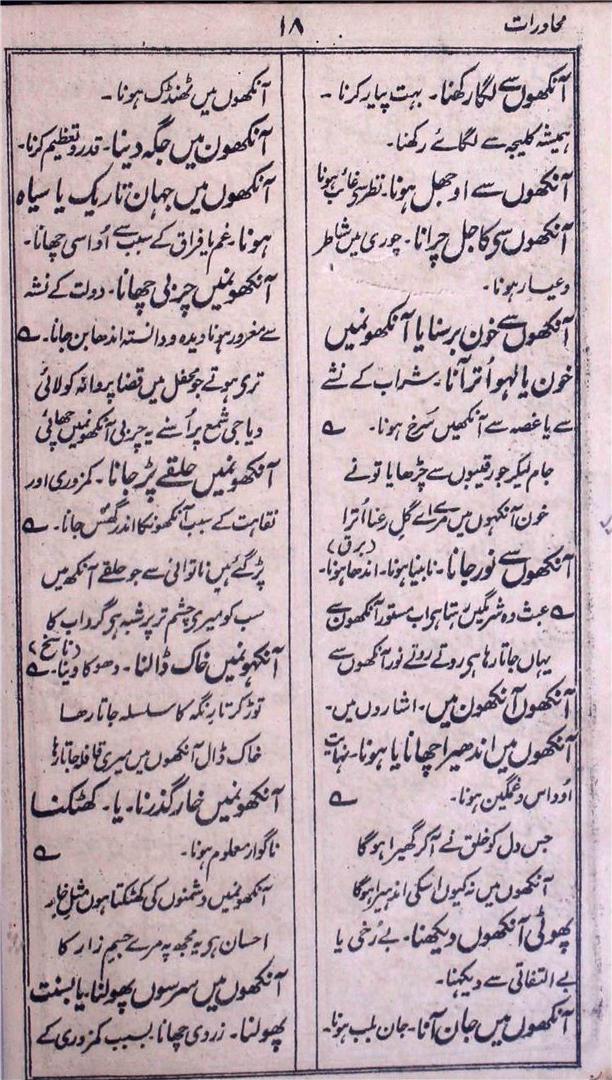 محاورات
۱۸
آنکھوں سے لگا رکھنا۔ بہت پیار کرنا۔
ہمیشہ کلیجہ سے لگائے رکھنا۔
آنکھوں سے اوجھل ہونا۔ نظر سے غائب ہونا
آنکھوں سی کاجل چرانا۔ چوری میں شاطر
وعیار ہونا۔
آنکھوں سے خون برسنا یا آنکھونمیں
خون یا لہو اُتر آنا۔ شراب کے نشے
سے یا غصہ سے آنکھیں سُرخ ہونا۔ ؎
جام لیکر جو رقیبوں سے چڑھایا تو نے
خون آنکھوں میں مرے اے گلِ رعنا اُترا
(برق)
آنکھوں سے نور جانا۔ نابینا ہونا۔ اندھا ہونا۔
؎ عبث وہ شرمگیں رہتا ہی اب مستور آنکھوں سے
یہاں جاتا رہا ہی روتے روتے نور آنکھوں سے
آنکھوں آنکھون میں۔ اشاروں میں۔
آنکھوں میں اندھیرا چھانا یا ہونا۔ نہایت
اُوداس وغمگین ہونا۔ ؎
جس دل کو خلق نے آکر گھیرا ہوگا
آنکھوں میں نہ کیوں اسکی اندھیرا ہوگا
پھوٹی آنکھوں دیکھنا۔ بے رخی یا
بے التفاتی سے دیکہنا۔
آنکھوں میں جان آنا۔ جان بلب ہونا۔
آنکھوں میں ٹھنڈک ہونا۔
آنکھون میں جگہ دینا۔ قدر و تعظیم کرنا۔
آنکھوں میں جہان تاریک یا سیاہ
ہونا۔ غم یا فراق کے سبب سے اُداسی چھانا۔
آنکھونمیں چربی چھانا۔ دولت کے نشہ
سے مغرور ہونا ویدہ و دانستہ اندھا بن جانا۔ ؎
تری ہوتے جو محفل میں قضا پروانہ کو لائی
دیا جی شمع پر اُسنے یہ چربی آنکھونمیں چھائی
آنکھونمیں حلقے پڑ جانا۔ کمزوری اور
نقاہت کے سبب آنکھونکا اندر گھس جانا۔ ؎
پڑ گئے ہیں ناتوانی سے جو حلقے آنکھ میں
سب کو میری چشم تر پر شبہ ہی گرداب کا
(ناسخ)
آنکہونمیں خاک ڈالنا۔ دھوکا دینا۔ ؎
توڑ کر تار نگہ کا سلسلہ جاتا رھا
خاک ڈال آنکھوں میں میری قافلہ جاتا رہا
آنکھونمیں خار گذرنا۔ یا۔ کھٹکنا
ناگوار معلوم ہونا۔ ؎
آنکھونمیں دشمنوں کی کھٹکتا ہوں مثلِ خار
احسان ہی یہ مجھ پہ مرے جسیم زار کا
آنکھوں میں سرسوں پھولنا۔ یا بسنت
پھولنا۔ زردی چھانا۔ بسبب کمزوری کے